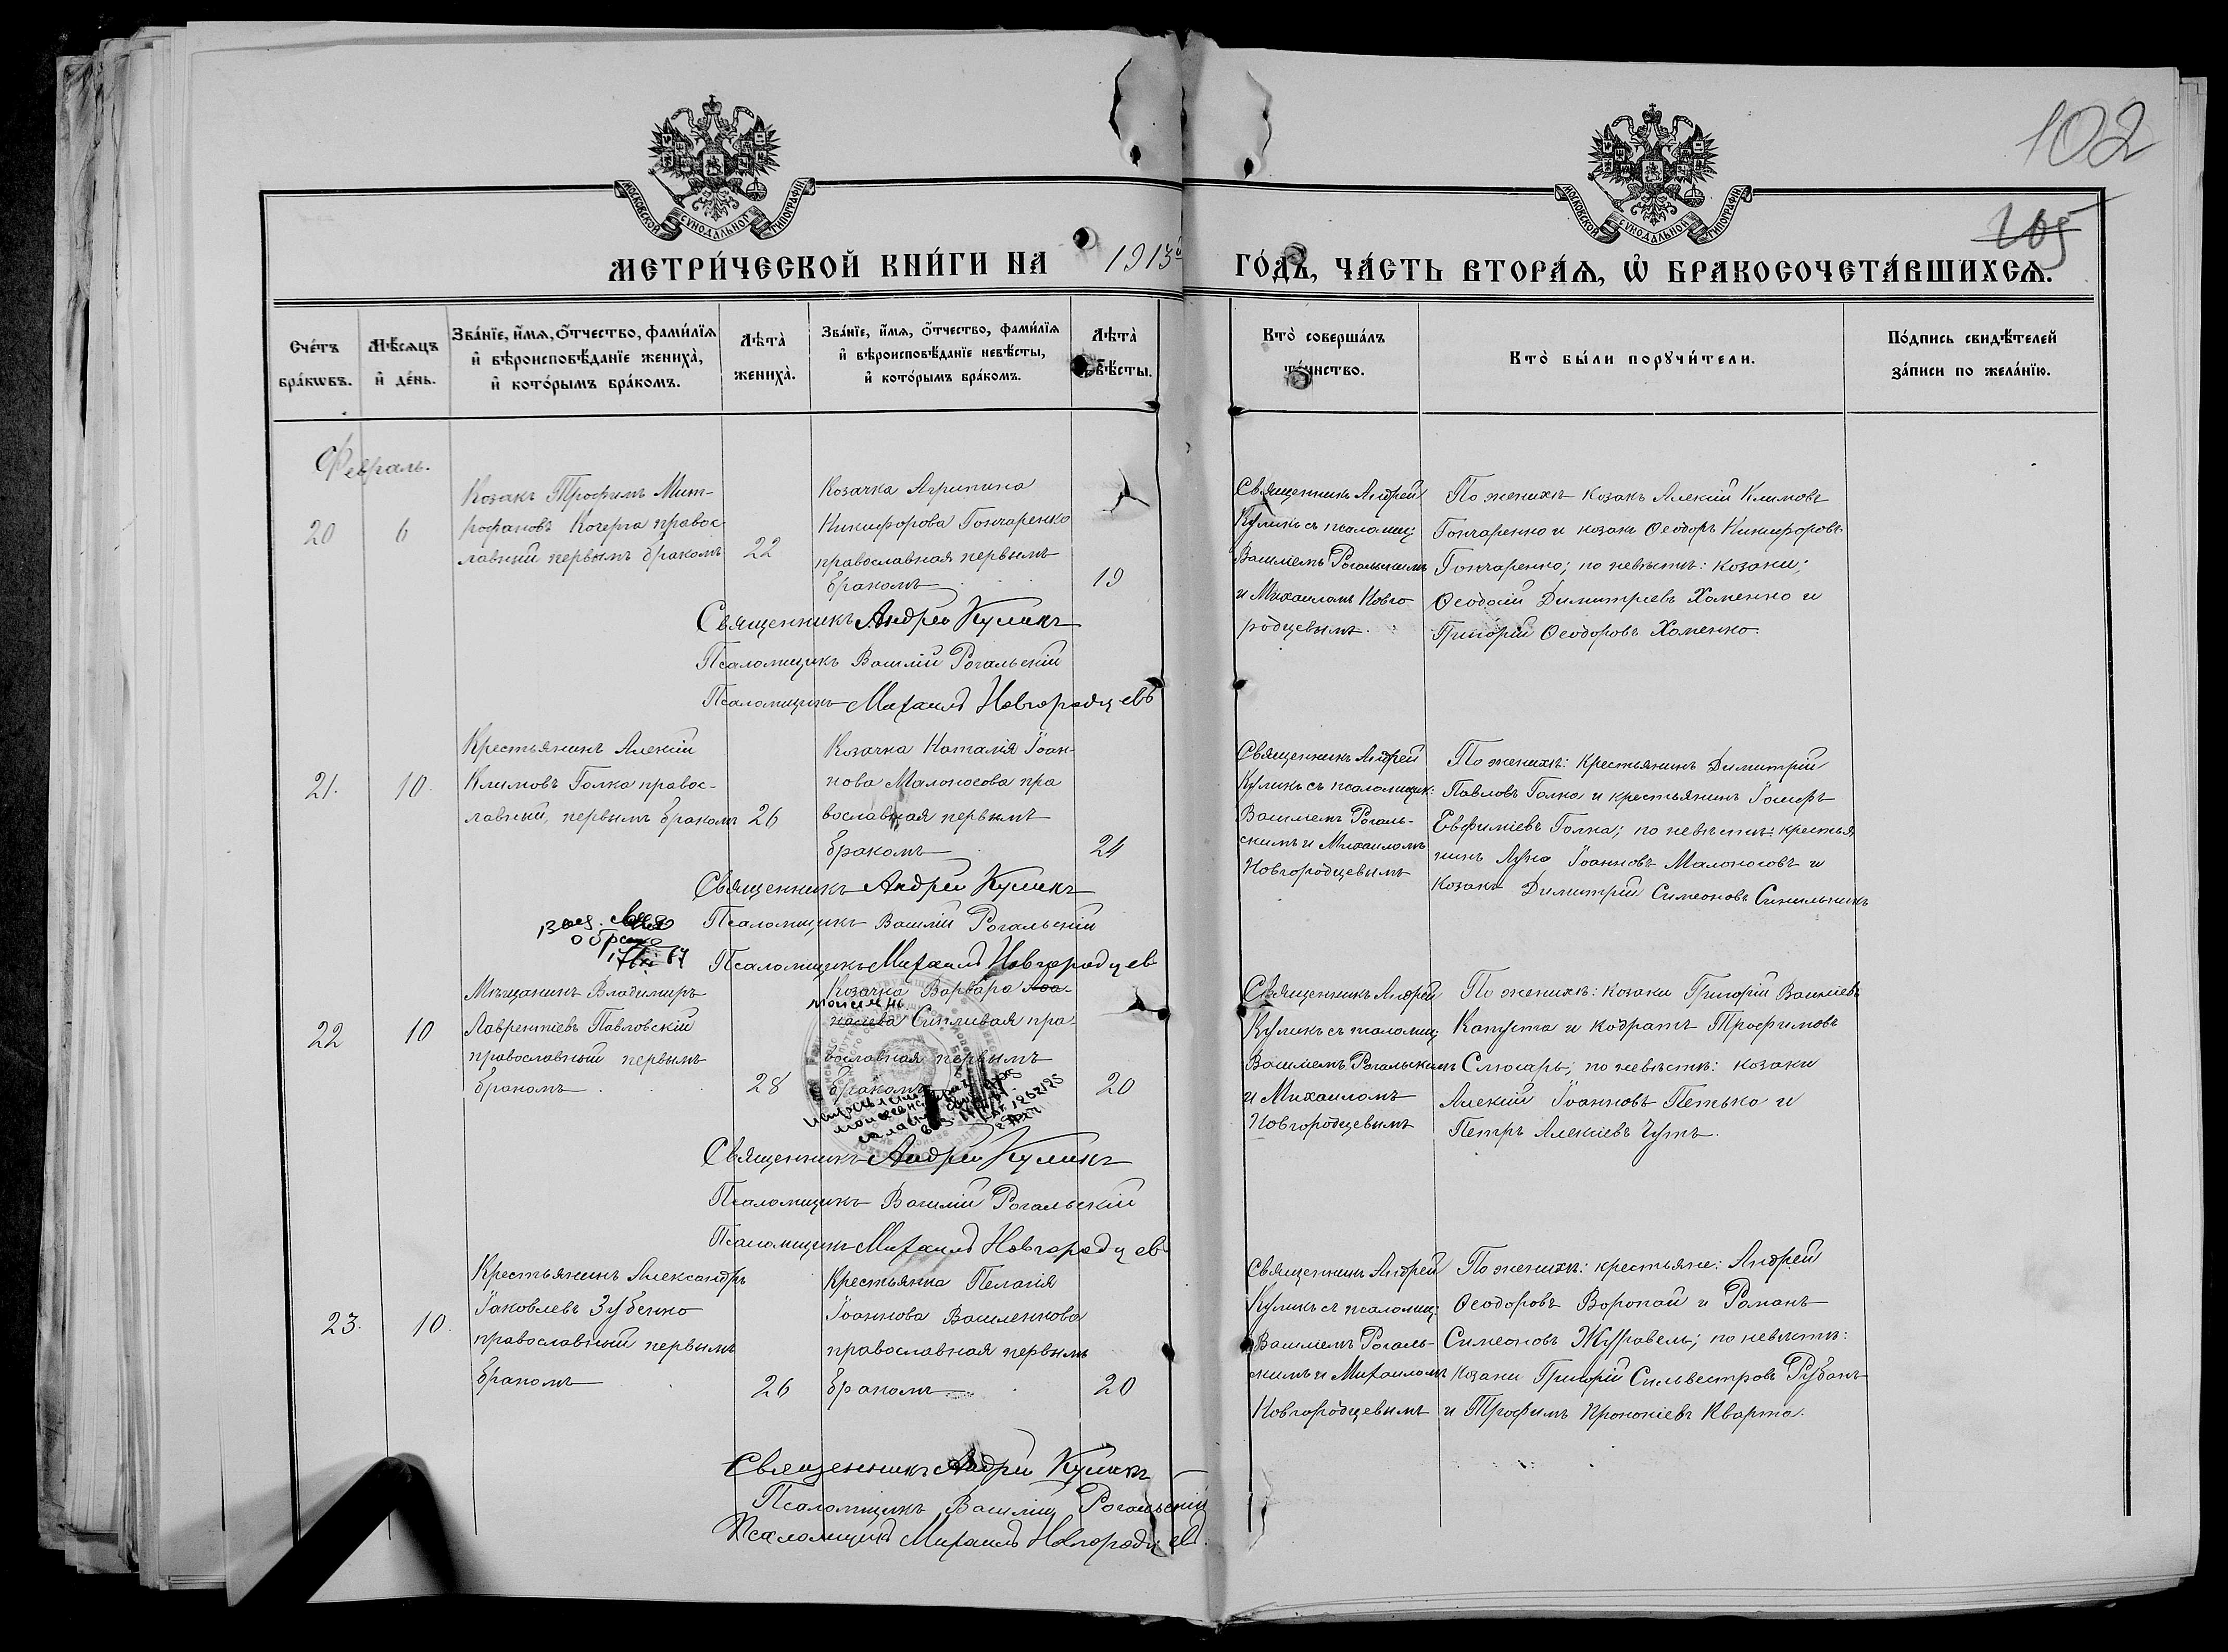 102
105
МОСКОВСКОЙ СУНОДАЛЬНОЙ ТИПОГРАФІИ
МОСКОВСКОЙ СУНОДАЛЬНОЙ ТИПОГРАФІИ
МЕТРИ́ЧЕСКОЙ КНИ́ГИ НА 1913й ГО́ДЪ, ЧА́СТЬ ВТОРА́Ѧ, Ѡ БРАКОСОЧЕТА́ВШИХСѦ.
Сче́тъ бра́кѡвъ.
Мѣ́сѧцъ и҆ де́нь.
Зва́нїе, и҆́мѧ, ѻ҆́тчество, фами́лїѧ и҆ вѣроисповѣ́данїе жениха̀, и҆ кото́рымъ бра́комъ.
Лѣ́та̀ жениха̀.
Зва́нїе, и҆́мѧ, ѻ҆́тчество, фами́лїѧ и҆ вѣроисповѣ́данїе невѣ́сты, и҆ кото́рымъ бра́комъ.
Лѣ́та̀ невѣ́сты.
Кто̀ соверша́лъ та́инство.
Кто̀ бы́ли порꙋчи́тели.
По́дпись свидѣ́телей за́писи по жела́нїю.
Февраль.
20
6
Козакъ Трофимъ Мит-
рофановъ Кочерга правос
лавный первымъ бракомъ
22
Козачка Агрипина
Никифорова Гончаренко
православная первымъ
бракомъ
19
Священникъ Андрей
Куликъ съ псаломщ:
Василіемъ Рогальскимъ
и Михаиломъ Новго
родцевымъ.
По женихѣ козакъ Алексій Климовъ
Гончаренко и козакъ Ѳеодоръ Никифоровъ
Гончаренко; по невѣстѣ: козаки;
Ѳеодосій Димитріевъ Хоменко и
Григорій Ѳеодоровъ Хоменко.
Священникъ Андрей Куликъ
Псаломщикъ Василій Рогальскій
Псаломщикъ Михаилъ Новгородцевъ
21.
10.
Крестьянинъ Алексій
Климовъ Галка правос-
лавный, первымъ бракомъ
26
Козачка Наталія Іоан-
нова Малоносова пра
вославная первымъ
бракомъ
21
Священникъ Андрей
Куликъ съ псаломщик:
Василіемъ Рогаль-
скимъ и Михаиломъ
Новгородцевымъ
По женихѣ: крестьянинъ Димитрій
Павловъ Галка и крестьянинъ Іосифъ
Евфиміевъ Галка; по невѣстѣ: крестья
нинъ Лука Іоанновъ Малоносовъ и
козакъ Димитрій Симеоновъ Синильникъ
Священникъ Андрей Куликъ
Псаломщикъ Василій Рогальскій
Псаломщикъ Михаилъ Новгородцев
22
10
Мѣщанинъ Владимиръ
Лаврентіевъ Павловскій
православный первымъ
бракомъ
28
Козачка Варвара
Сипливая пра-
вославная первымъ
бракомъ
20
Священникъ Андрей
Куликъ съ псаломщ:
Василіемъ Рогальскимъ
и Михаиломъ
Новгородцевымъ
По женихѣ: козаки Григорій Василіевъ
Капуста и Кодратъ Трофимовъ
Слюсарь; по невѣстѣ: козаки
Алексій Іоанновъ Петько и
Петръ Алексіевъ Чутъ.
Священникъ Андрей Куликъ
Псаломщикъ Василій Рогальскій
Псаломщикъ Михаилъ Новгородцев
23.
10.
Крестьянинъ Александръ
Іаковлевъ Зубенко
православный первымъ
бракомъ
26
Крестьянка Пелагія
Іоаннова Василенкова
православная первымъ
бракомъ
20
Священникъ Андрей
Куликъ съ псаломщ:
Василіемъ Рогаль-
скимъ и Михаиломъ
Новгородцевымъ
По женихѣ: крестьяне: Андрей
Ѳеодоровъ Воропай и Романъ
Симеоновъ Журавель; по невѣстѣ:
козаки Григорій Сильвестровъ Рубанъ
и Трофимъ Прокопіевъ Кварта.
Священникъ Андрей Куликъ
Псаломщикъ Василій Рогальскій
Псаломщикъ Михаилъ Новгородцев.